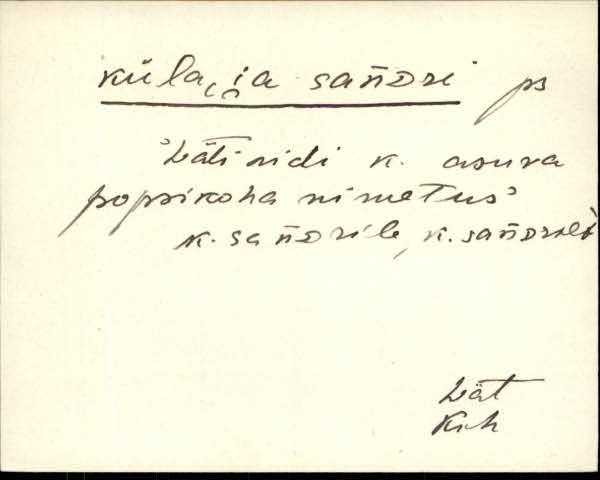 küla i̮a sañᴅri ps
"Lätiniidi k. asuva
popsikoha nimetus"
k. sañᴅrile, k. sañᴅrilt
Lät
Krh